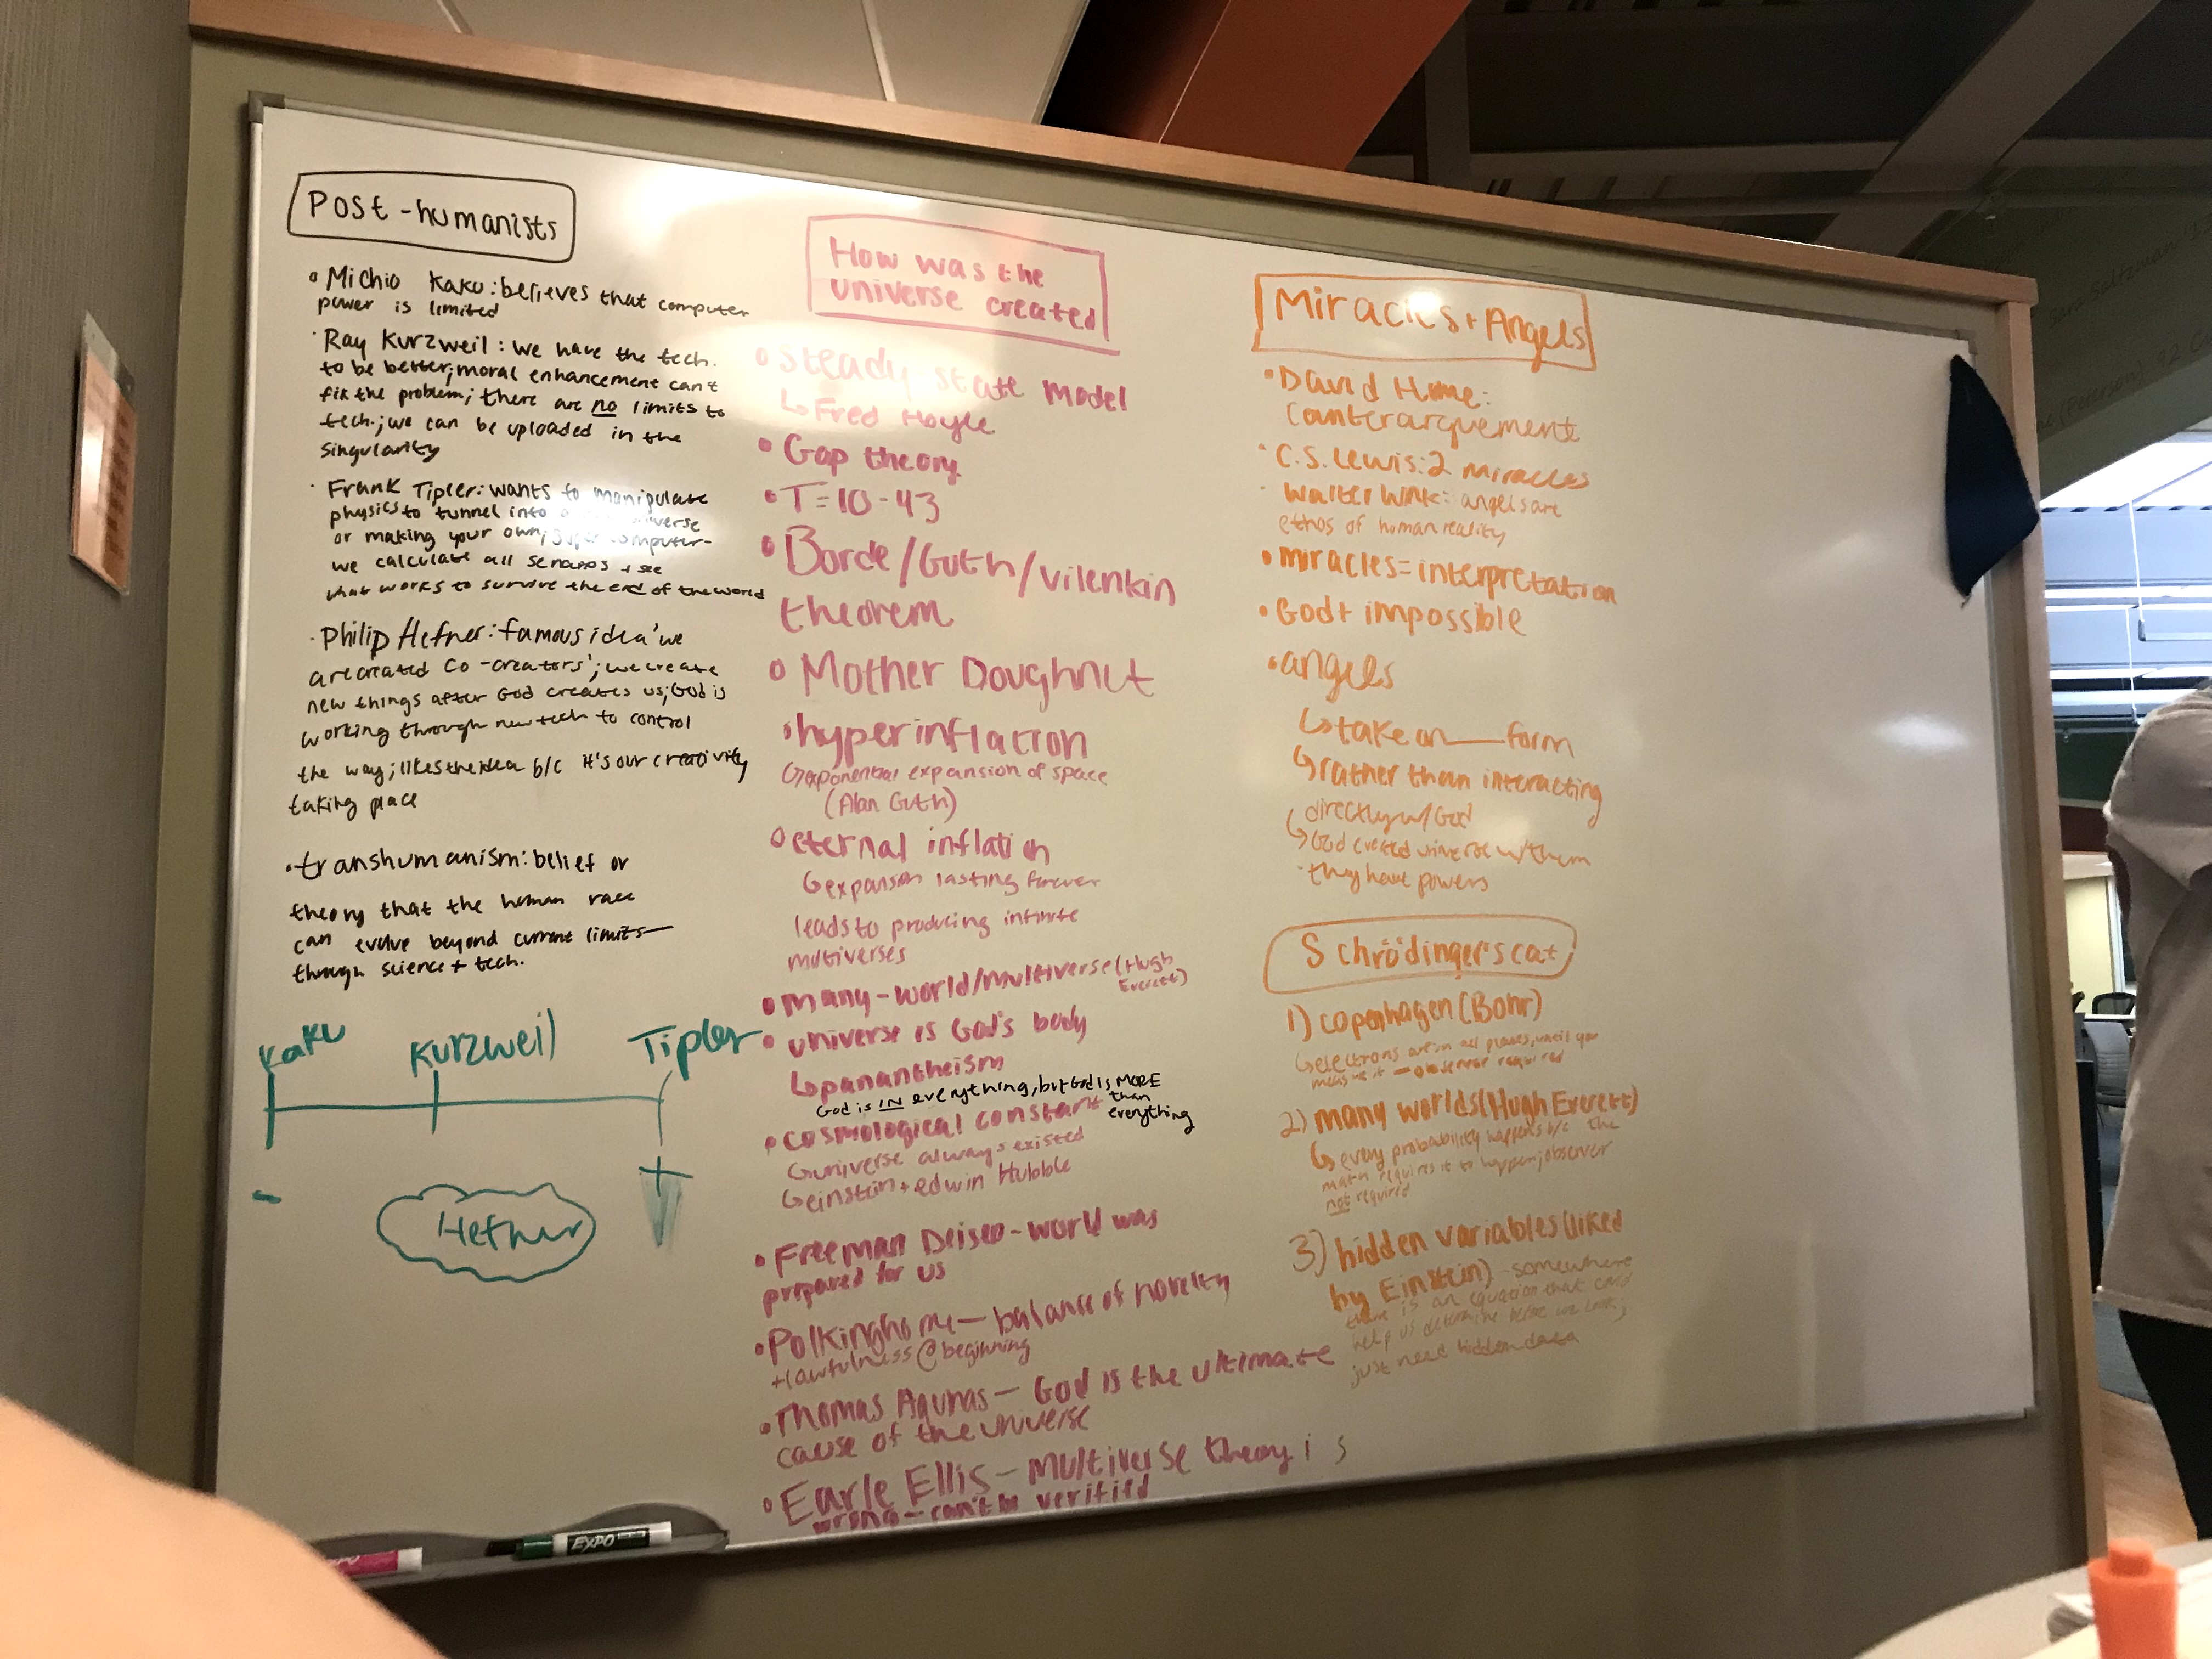 Post-humanists
• Michio Kaku: believes that computer
power is limited
· Ray Kurzweil: we have the tech.
to be better; moral enhancement can't
fix the problem; there are no limits to
tech.; we can be uploaded in the
singularity
· Frank Tipler: wants to manipulate
physics to tunnel into
or making your own; super computer-
we calculate all + see
what works to survive the end of the world
· Philip Hefner: famous idea 'we
are created co-creators'; we create
new things after God creates us; God is
working through new tech to control
the way; likes the idea b/c it's our creativity
taking place
• transhumanism: belief or
theory that the human race
can evolve beyond current limits
through science + tech.
Kaku Kurzweil Tipler
- +
Hefner
How was the
universe created
• Steady state model
↳ Fred Hoyle
• Gap theory
• T=10-43
• Borde/Guth/Vilenkin
theorem
• Mother Doughnut
• hyperinflation
↳ exponential expansion of space
(Alan Guth)
• eternal inflation
↳ expansion lasting forever
leads to producing infinite
multiverses
• many-world/multiverse (Hugh
Everett)
• universe is God's body
↳ panantheism
God is IN everything, but God is MORE
than
everything
• cosmological constant
↳ universe always existed
↳ einstein + edwin Hubble
• Freeman Deisen - world was
prepared for us
• Polkinghorne - balance of novelty
+ lawfulness @ beginning
• Thomas Aquinas - God is the ultimate
cause of the universe
• Earle Ellis - multiverse theory is
wrong - can't be verified
Miracles + Angels
• David Hume:
counterarguement
• C.S. Lewis: 2 miracles
· Walter Wink: angels are
ethos of human reality
• miracles = interpretation
• God + impossible
• angels
↳ take on ___ form
↳ rather than interacting
directly w/ God
↳ God created universe w/ them
- they have powers
Schrödinger's cat
1) copenhagen (Bohr)
↳ electrons are in all places, until you
measure it - observer required
2) many worlds (Hugh Everett)
↳ every probability happens b/c the
math requires it to happen; observer
not required
3) hidden variables (liked
by Einstein) - somewhere
there is an equation that could
help us determine before we look,
just need hidden data
EXPO